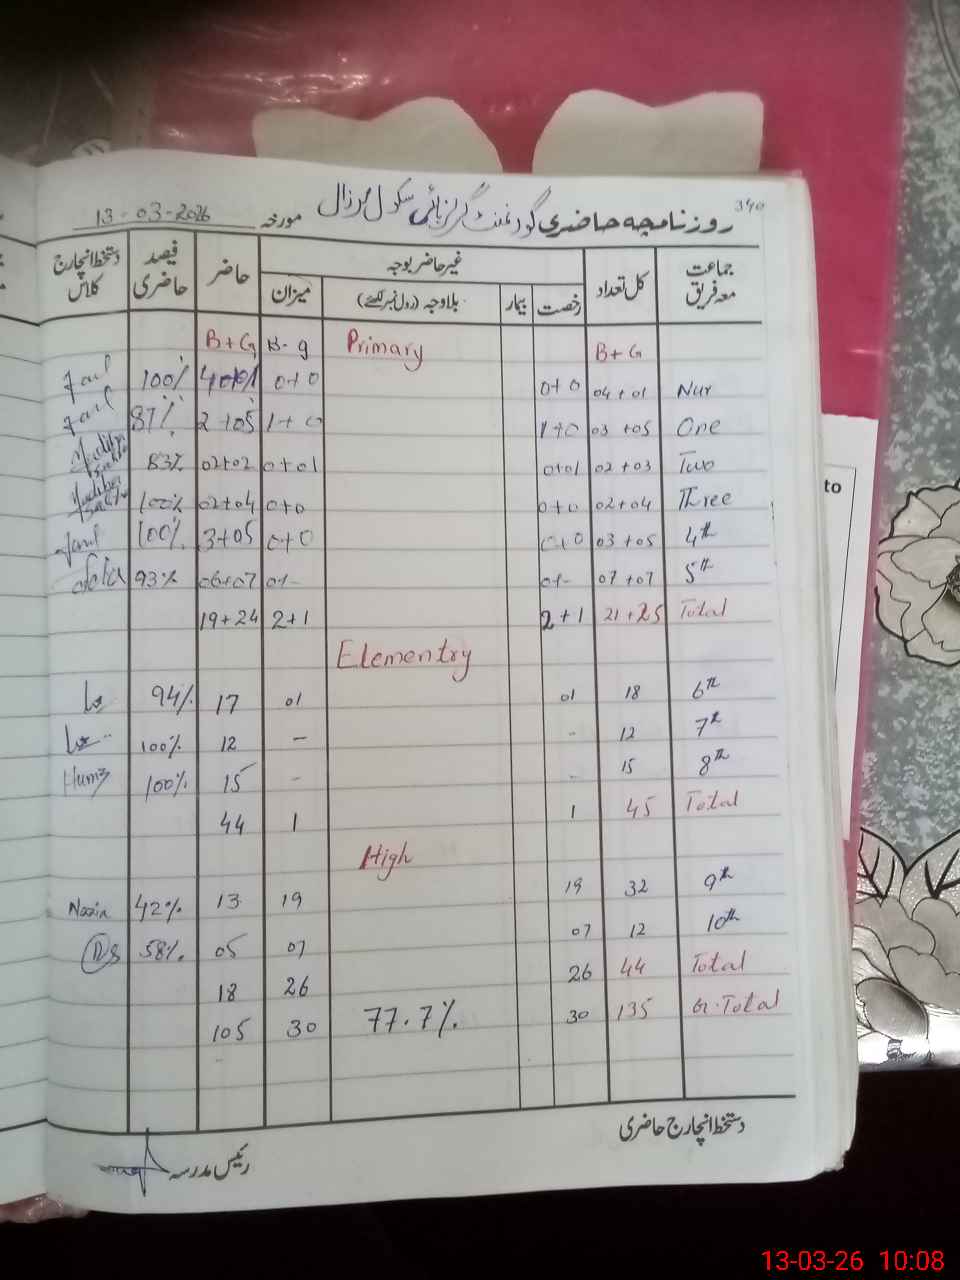 340
روزنامچہ حاضری گورنمنٹ گرلز ہائی سکول مورخہ 13-03-2026
جماعت معہ فریق کل تعداد غیر حاضر بوجہ حاضر فیصد حاضری دستخط انچارج کلاس
رخصت بیمار بلاوجہ (رول نمبر لکھئے) میزان
B+G Primary B-g B+G
Nur 04+01 0+0 0+0 100%
One 03+05 1+0 1+0 2+05 87%
Two 02+03 0+01 0+01 02+02 83%
Three 02+04 0+0 0+0 02+04 100%
4th 03+05 0+0 0+0 3+05 100%
5th 07+07 01- 01- 06+07 93%
Total 21+25 2+1 2+1 19+24
Elementry
6th 18 01 01 17 94%
7th 12 - - 12 100%
8th 15 - - 15 100%
Total 45 1 1 44
High
9th 32 19 19 13 42% Nazia
10th 12 07 07 05 58%
Total 44 26 26 18
G.Total 135 30 77.7% 30 105
دستخط انچارج حاضری
رئیس مدرسہ
to
13-03-26 10:08